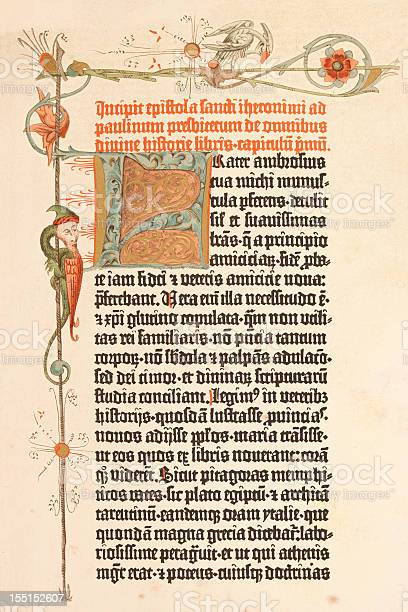 Incipit epistola sancti iheronimi ad
paulinum presbiterum de omnibus
divine historie libris. capitulum pmũ.
Frater ambrosius
tua michi munus-
cula pferens. detulit
sił et suavissimas
lrãs. q̃ a principio
amiciciaꝝ. fidẽ pba-
te iam fidei et veteris amicicie nova:
pferebant. Vera enĩ illa necessitudo ẽ.
et xpĩ glutino copulata. qm̃ non utili-
tas rei familiaris. nõ pñcia tantum
corpoꝝ. nõ sbdola et palpãs adulacõ.
sed dei timor. et divinaꝝ scripturarum
studia conciliant. Legimꝰ in veteribꝫ
historijs. quosdã lustrasse ꝓvĩcias.
novos adijsse pplos. maria trãsisse.
ut eos quos ex libris noverant: corã
qꝫ viderẽt. Sicut pitagoras memphi-
ticos vates. sic plato egiptũ. et architã
tarentinũ. eandemqꝫ oram ytalie. que
quondã magna grecia dicebat̃: labo-
riosissime peragvit. et ut qui athenis
mgr̃ erat. et potens. cuiusqꝫ doctrinas
iStock
155152607